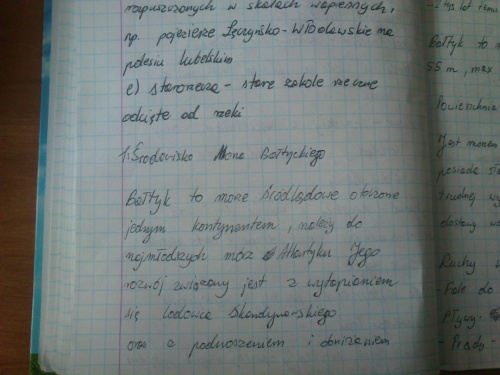 rozpuszczonych w skałach wapiennych,
np. pojezierze Łęczyńsko-Włodawskie na
polesiu lubelskim
e) starorzecza - stare zakole rzeczne
odcięte od rzeki
1. Środowisko Morza Bałtyckiego
Bałtyk to morze śródlądowe otoczone
jednym kontynentem, należy do
najmłodszych mórz Atlantyku Jego
rozwój związany jest z wytapianiem
się lodowca Skandynawskiego
oraz z podnoszeniem i obniżaniem
-2 tys lat temu
Bałtyk to m
55 m, max
Powierzchnia
Jest morzem
posiada
trudnej wy
dostawy wo
Ruchy w
- Fale do
- Pływy-
- Prądy -